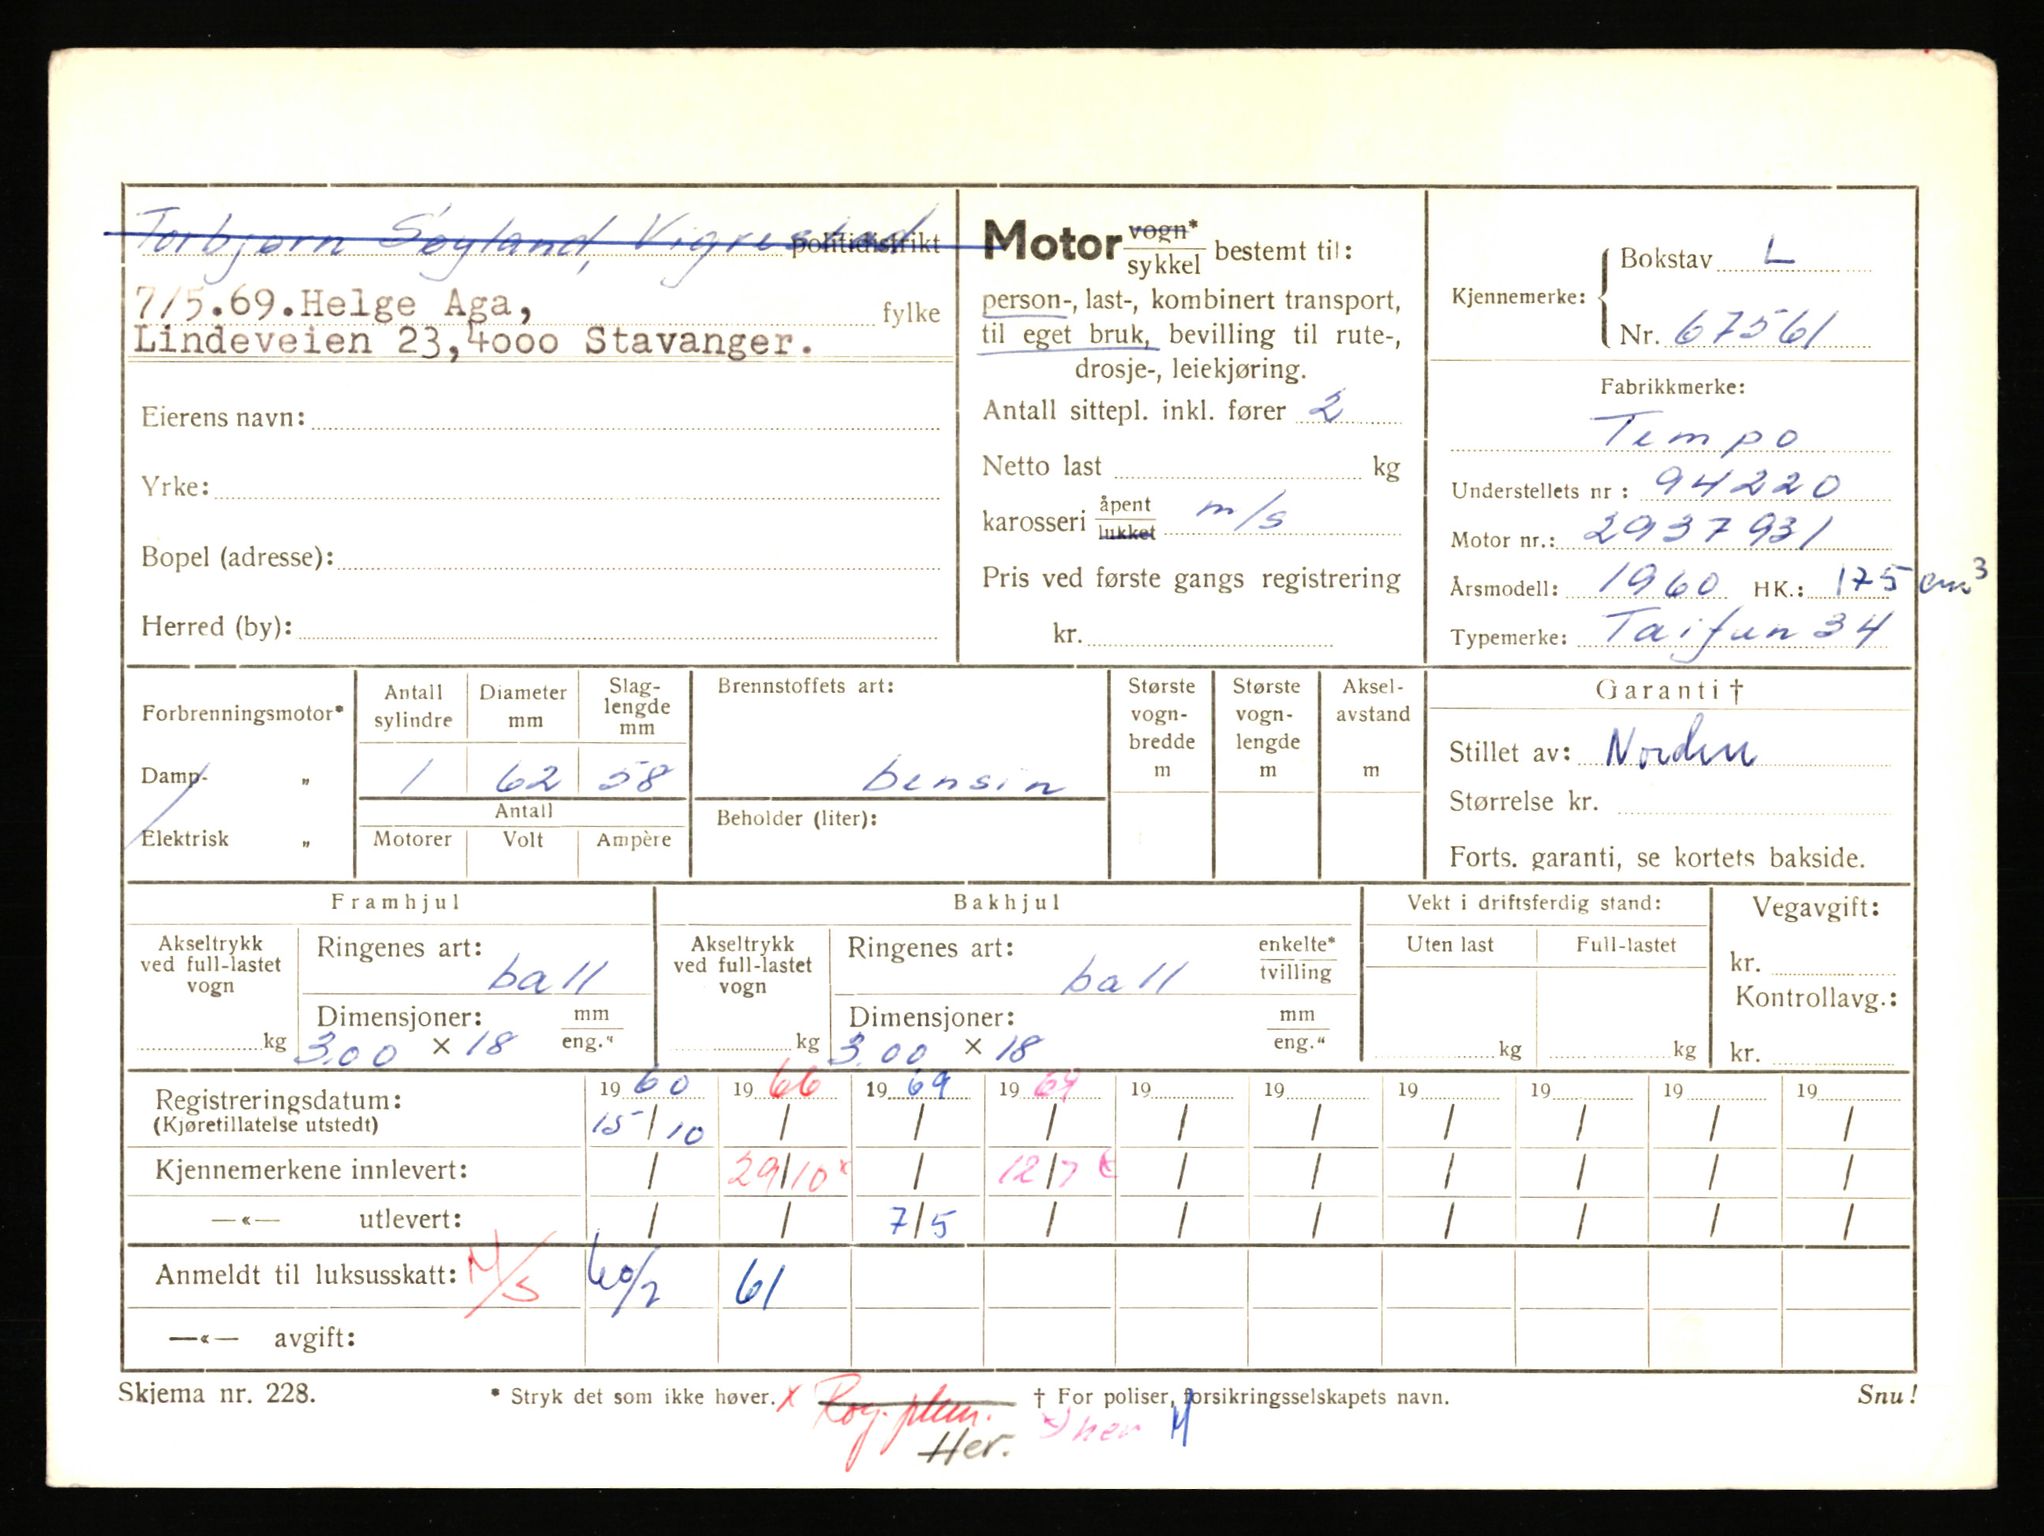 Torbjørn Søyland, Vigrestad politidistrikt
7/5.69. Helge Aga, fylke
Lindeveien 23, 4000 Stavanger.
Eierens navn:
Yrke:
Bopel (adresse):
Herred (by):
Motor vogn* / sykkel bestemt til:
person-, last-, kombinert transport,
til eget bruk, bevilling til rute-,
drosje-, leiekjøring.
Antall sittepl. inkl. fører 2
Netto last kg
karosseri åpent / lukket m/s
Pris ved første gangs registrering
kr.
Kjennemerke: Bokstav L
Nr. 67561
Fabrikkmerke:
Tempo
Understellets nr: 94220
Motor nr.: 2937931
Årsmodell: 1960 HK.: 175 cm³
Typemerke: Taifun 34
Forbrenningsmotor*
Damp- „
Elektrisk „
Antall sylindre 1
Diameter mm 62
Slag-lengde mm 58
Antall
Motorer Volt Ampère
Brennstoffets art:
bensin
Beholder (liter):
Største vogn-bredde m
Største vogn-lengde m
Aksel-avstand m
Garanti †
Stillet av: Norden
Størrelse kr.
Forts. garanti, se kortets bakside.
Framhjul
Akseltrykk ved full-lastet vogn kg
Ringenes art: ball
Dimensjoner: mm / eng.“
3.00 × 18
Bakhjul
Akseltrykk ved full-lastet vogn kg
Ringenes art: ball enkelte* / tvilling
Dimensjoner: mm / eng.“
3.00 × 18
Vekt i driftsferdig stand:
Uten last Full-lastet
kg kg
Vegavgift:
kr.
Kontrollavg.:
kr.
Registreringsdatum: 1960 1966 1969 1969 19 19 19 19 19 19
(Kjøretillatelse utstedt) 15/10 / / / / / / / / /
Kjennemerkene innlevert: / 29/10 x / 12/7 / / / / / /
—«— utlevert: / / 7/5 / / / / / / /
Anmeldt til luksusskatt: M/S 60/2 61
—«— avgift:
Skjema nr. 228. * Stryk det som ikke høver. † For poliser, forsikringsselskapets navn. Snu!
x Rog. plen. her M
Her.